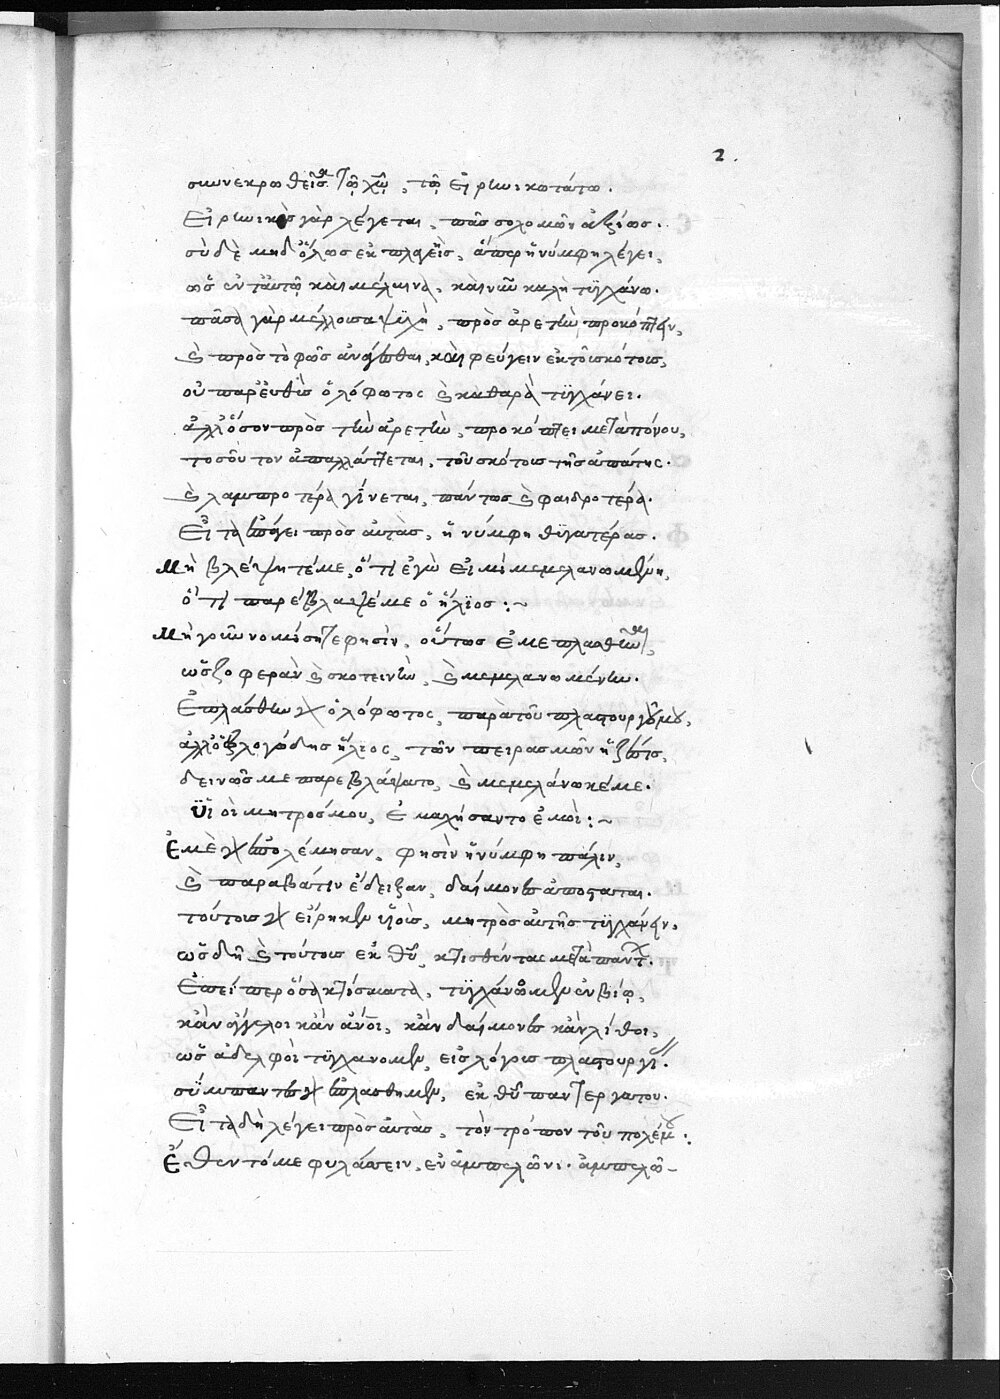 2.
συννεκρωθεῖσα τῷ χῷ, τῷ εἰρηνικωτάτω.
Εἰρηνικὸς γὰρ λέγεται, πᾶς σολομῶν ἀξίως.
σὺ δὲ μηδόλως ἐκπλαγῇς, ἅπερ ἡ νύμφη λέγει,
ὡς ἐν ταυτῷ καὶ μέλαινα, καὶ νῦν καλὴ τυγχάνω.
πᾶσα γὰρ μέλλουσα ψυχὴ, πρὸς ἀρετὴν προκόπτειν,
καὶ πρὸς τὸ φῶς ἀνάγεσθαι, καὶ φεύγειν ἐκ τοῦ σκότους,
οὐ παρευθὺς ὁλόφωτος καὶ καθαρὰ τυγχάνει.
ἀλλ' ὅσον πρὸς τὴν ἀρετὴν, προκόπτει μετὰ πόνου,
τοσοῦτον ἀπαλλάττεται, τοῦ σκότους τῆς ἀπάτης.
καὶ λαμπροτέρα γίνεται, πάντως καὶ φαιδροτέρα.
Εἶτα ἐπάγει πρὸς αὐτὰς, ἡ νύμφη θυγατέρας.
Μὴ βλέψητέ με, ὅτι ἐγώ εἰμι μεμελανωμένη,
ὅτι παρέβλαψέ με ὁ ἥλιος :~
Μὴ γοῦν νομίσητε φησὶν, οὕτως ἐμὲ πλασθῆναι,
ὡς ζοφερὰν καὶ σκοτεινὴν, καὶ μεμελανωμένην.
Ἐπλάσθην γὰρ ὁλόφωτος, παρὰ τοῦ πλαστουργοῦ μου,
ἀλλ' ὁ φλογώδης ἥλιος, τῶν πειρασμῶν ἡ ζέσις,
δεινῶς με παρεβλάψατο, καὶ μεμελάνωκέ με.
Υἱοὶ μητρός μου, ἐμαχήσαντο ἐμοὶ :~
Ἐμὲ γὰρ ἐπολέμησαν, φησὶν ἡ νύμφη πάλιν,
καὶ παραβάτιν ἔδειξαν, δαίμονες ἀποστάται.
τούτους γὰρ εἴρηκεν υἱοὺς, μητρὸς αὐτῆς τυγχάνειν,
ὡς δὴ καὶ τούτους ἐκ θυ, κτισθέντας μετὰ πάντων.
Ἐπείπερ ὅσα κτίσματα, τυγχάνομεν ἐν βίῳ,
κἂν ἄγγελοι κἂν ἄνοι, κἂν δαίμονες κἂν λίθοι,
ὡς ἀδελφοὶ τυγχάνομεν, εἰς λόγους πλαστουργίας.
σύμπαντες γὰρ ἐπλάσθημεν, ἐκ θυ παντεργάτου.
Εἶτα δὴ λέγει πρὸς αὐτὰς, τὸν τρόπον τοῦ πολέμου.
Ἔθεντό με φυλάσσειν, ἐν ἀμπελῶνι. ἀμπελῶ-